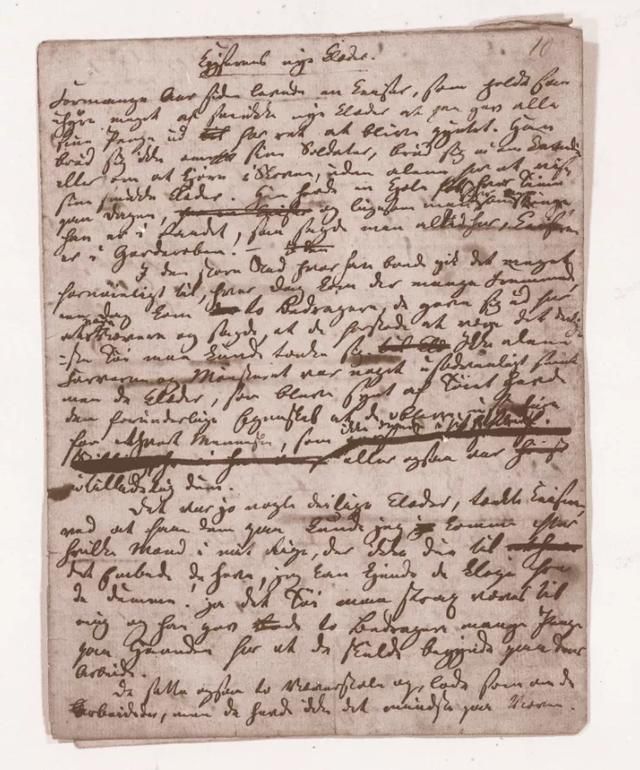 Keiserens nye Klæder.
10
For mange Aar siden levede en Keiser, som holdt saa
uhyre meget af smukke nye Klæder at han gav alle
sine Penge ud for ret at blive pyntet. Han
brød sig ikke om sine Soldater, brød sig ei om Comedie
eller om at kjøre i Skoven, uden alene for at vise
sine smukke Klæder. Han havde en Kjole for hver Time
paa Dagen, og ligesom man siger om en Konge
han er i Raadet, saa sagde man altid her, Keiseren
er i Garderoben. —
I den store Stad hvor han boede gik det meget
fornøieligt til, hver Dag kom der mange Fremmede,
een Dag kom to Bedragere, de gave sig ud for
at være Vævere og sagde at de forstode at væve det deilig-
ste Tøi man kunde tænke sig. Ikke alene
Farverne og Mønsteret var noget usædvanligt smukt
men de Klæder, som bleve syet af Tøiet havde
den forunderlige Egenskab at de bleve usynlige
for ethvert Menneske, som ikke duede i sit Embede.
eller ogsaa var
utilladelig dum.
Det var jo nogle deilige Klæder, tænkte Keiseren,
ved at have dem paa kunde jeg komme efter
hvilke Mænd i mit Rige, der ikke due til
det Embede de have, jeg kan kjende de kloge fra
de dumme! ja det Tøi maa strax væves til
mig og han gav de to Bedragere mange Penge
paa Haanden for at de skulde begynde paa deres
Arbeide.
De satte ogsaa to Vævestole op, lode som om de
arbeidede, men de havde ikke det mindste paa Væven.